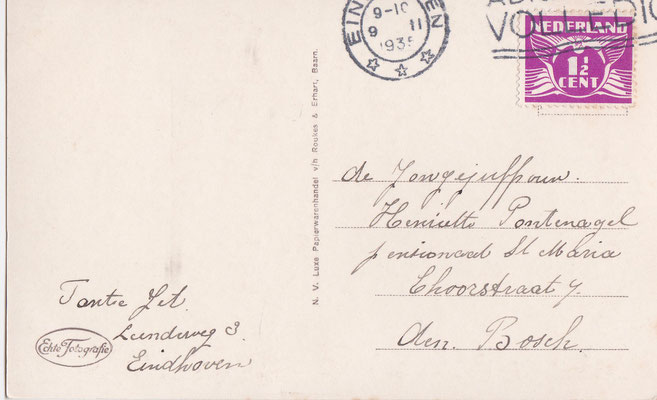 EIN EN
9-10
9 II
1935
VOLLEDIG
NEDERLAND
1½
CENT
N. V. Luxe Papierwarenhandel v/h Roukes & Erhart, Baarn.
de Jongejuffrouw.
Henriette Pontenagel
pensionaat St Maria
Choorstraat 7
den Bosch.
Tante Jet.
Leenderweg 3.
Eindhoven
Echte Fotografie